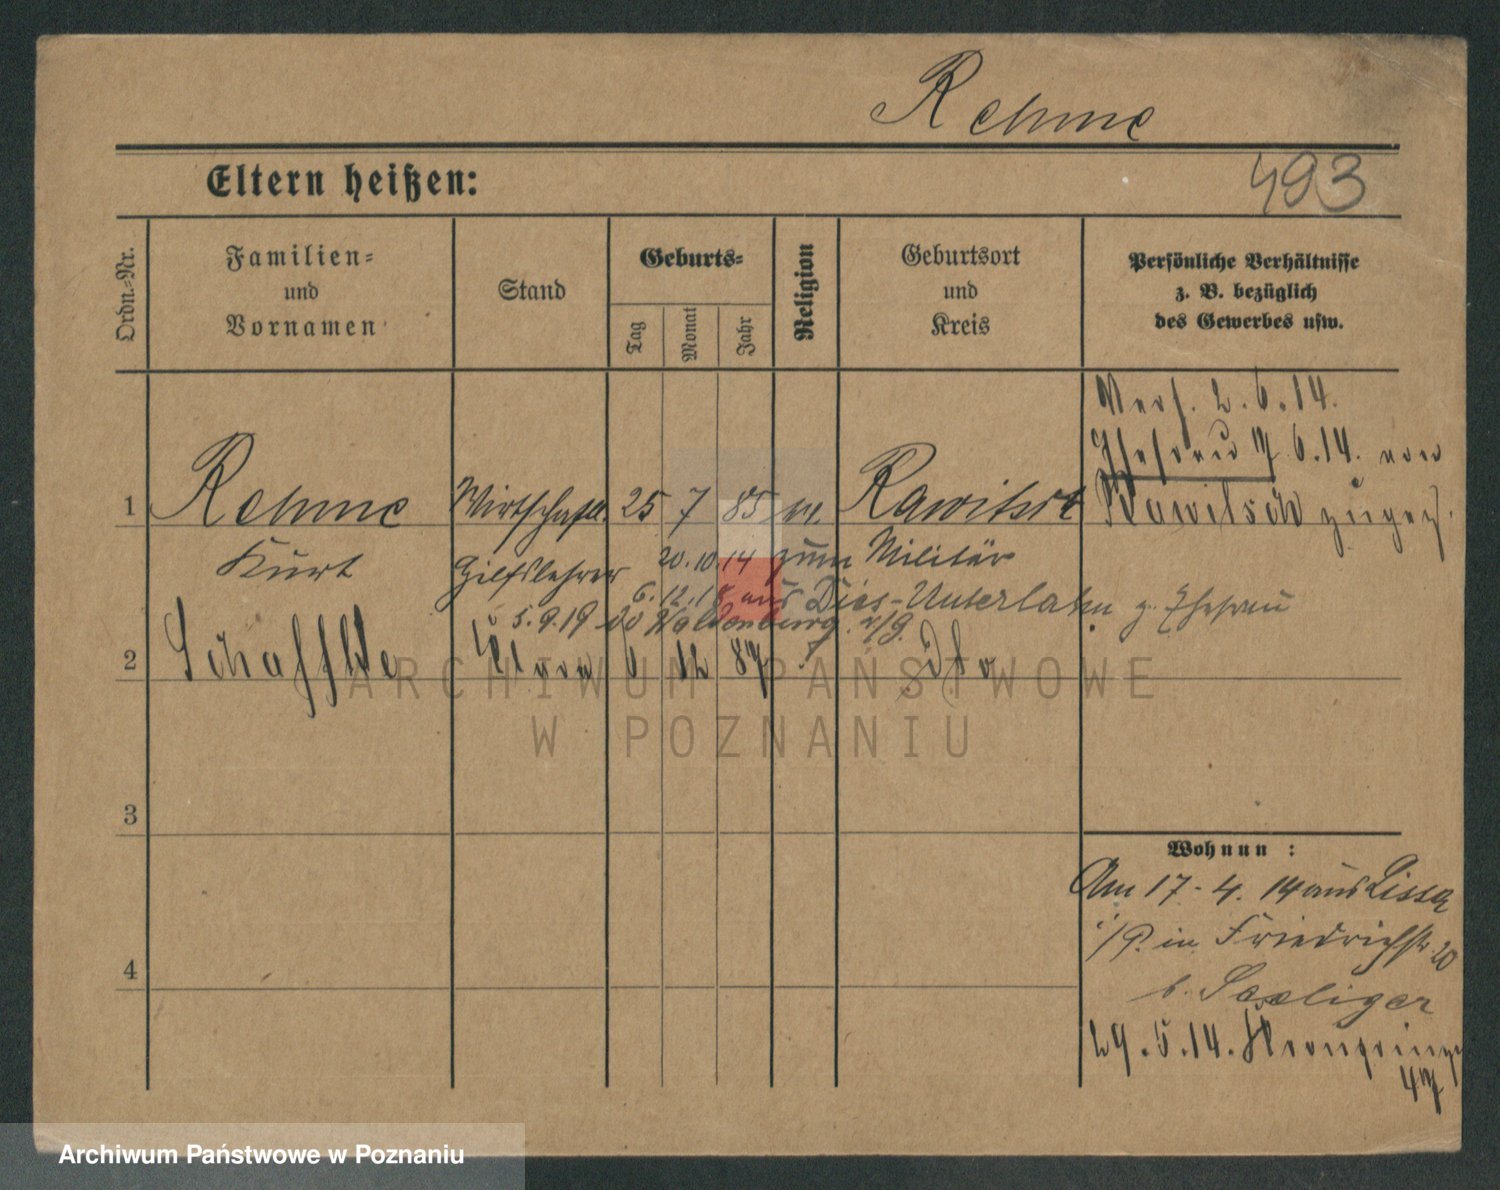 Rehme
Eltern heißen:
493
Ordn.-Nr.
Familien-
und
Vornamen
Stand
Geburts-
Tag
Monat
Jahr
Religion
Geburtsort
und
Kreis
Persönliche Verhältnisse
z. B. bezüglich
des Gewerbes usw.
2.6.14.
Ehefrau 7.6.14. von
Rawitsch zugez.
1
Rehme
25 7 85
Rawitsch
Kurt
Hilfslehrer
20.10.14 zum Militär
6.12.18 aus Dies-Unterlahn z. Ehefrau
5.9.19 Waldenburg
2
6 12 87
dto
3
4
Wohnun :
Am 17-4. 14 aus Lissa
i/P. in Friedrichstr 20
b. Seeliger
29.5.14. Kronprinz
47
ARCHIWUM PAŃSTWOWE
W POZNANIU
Archiwum Państwowe w Poznaniu